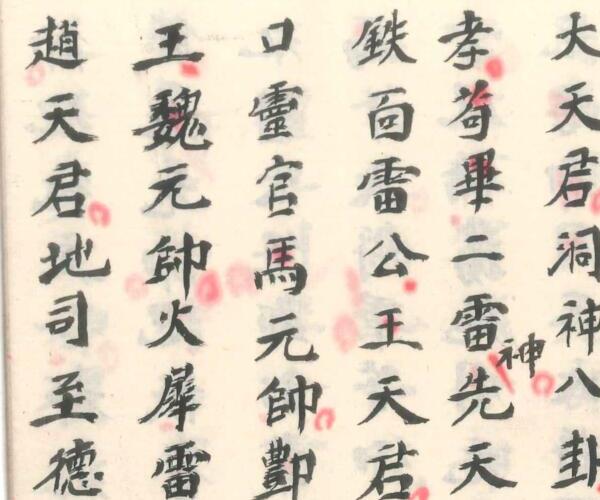 大天君洞神八卦
孝苟畢二雷神先天
鉄面雷公王天君
口靈官馬元帥酆
王魏元帥火犀雷
趙天君地司至德